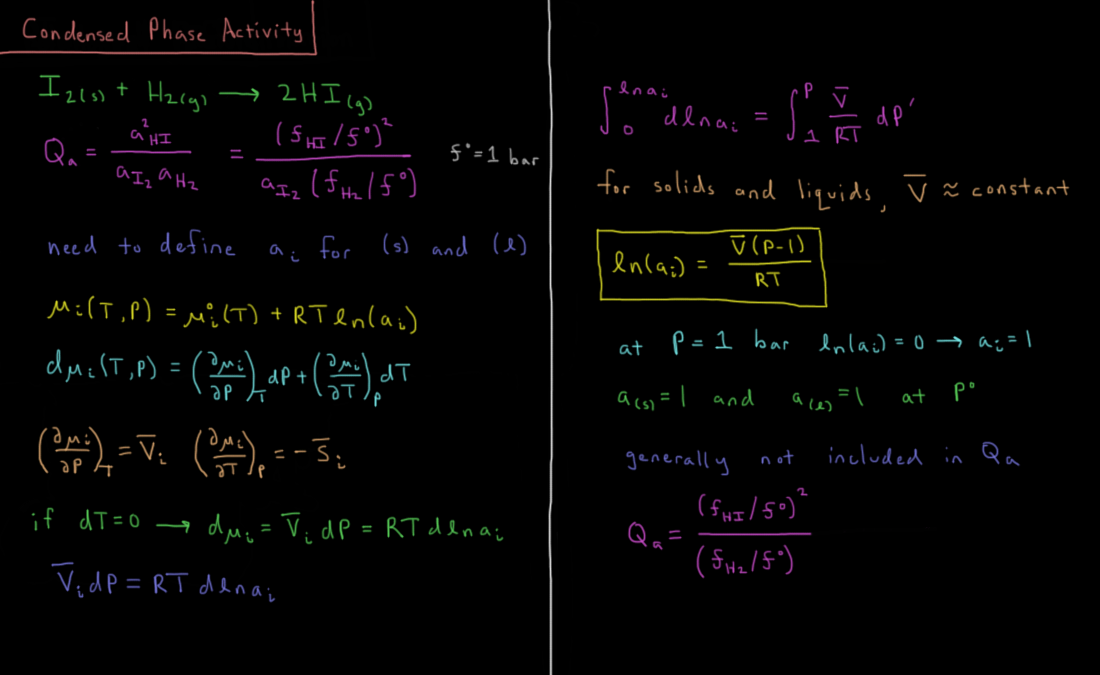 Condensed Phase Activity
I₂(s) + H₂(g) ⟶ 2HI(g)
Qₐ = a²_HI / (a_I₂ a_H₂) = (f_HI/f°)² / (a_I₂ (f_H₂/f°)) f°=1 bar
need to define aᵢ for (s) and (l)
μᵢ(T,P) = μᵢ°(T) + RT ln(aᵢ)
dμᵢ(T,P) = (∂μᵢ/∂P)_T dP + (∂μᵢ/∂T)_P dT
(∂μᵢ/∂P)_T = V̅ᵢ (∂μᵢ/∂T)_P = - S̅ᵢ
if dT=0 ⟶ dμᵢ = V̅ᵢ dP = RT dlnaᵢ
V̅ᵢ dP = RT dlnaᵢ
∫₀^lnaᵢ dlnaᵢ = ∫₁^P V̅/RT dP′
for solids and liquids, V̅ ≈ constant
ln(aᵢ) = V̅(P-1)/RT
at P = 1 bar ln(aᵢ) = 0 → aᵢ = 1
a(s) = 1 and a(l) = 1 at P°
generally not included in Qₐ
Qₐ = (f_HI/f°)² / (f_H₂/f°)